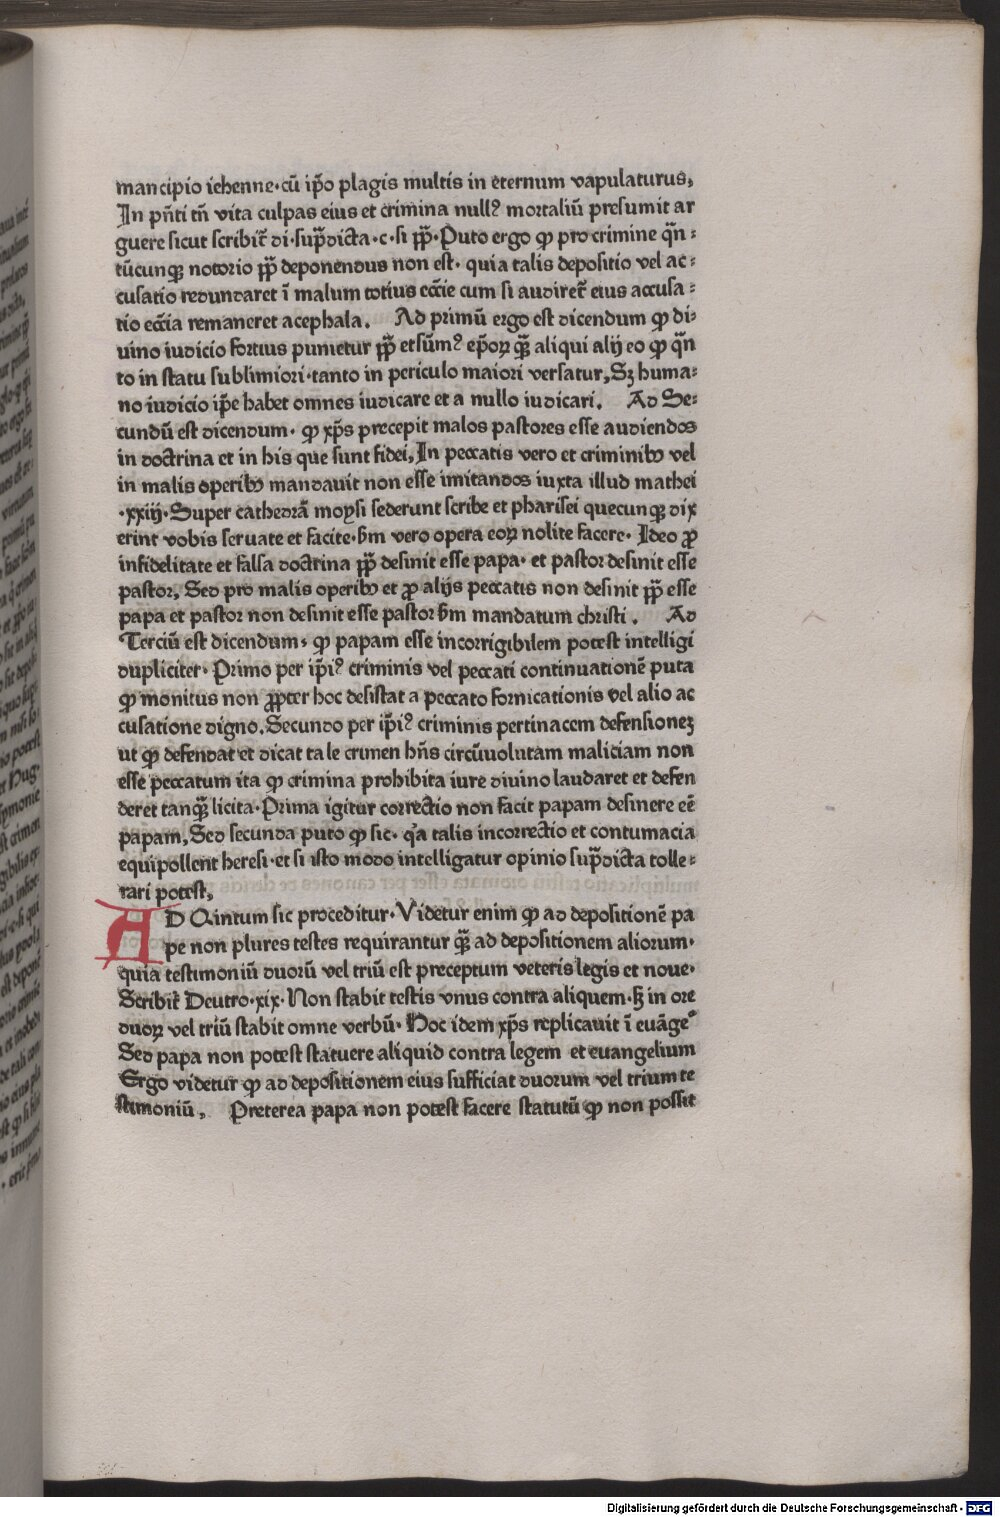 mancipio iehenne·cū ip̄o plagis multis in eternum vapulaturus,
In pn̄ti tn̄ vita culpas eius et crimina null⁹ mortaliū presumit ar
guere sicut scribit̄ di·sup̄dicta·c·si pp̄·Puto ergo ꝙ pro crimine qn̄⸗
tūcunqꝫ notorio pp̄ deponendus non est· quia talis depositio vel ac⸗
cusatio redundaret ī malum totius eccīe cum si audiret̄ eius accusa⸗
tio eccīa remaneret acephala. Ad primū ergo est dicendum ꝙ di⸗
uino iudicio fortius punietur pp̄ et sūm⁹ ep̄oꝝ qꝫ̄ aliqui alij eo ꝙ qn̄
to in statu sublimiori·tanto in periculo maiori versatur,Sꝫ huma⸗
no iudicio ip̄e habet omnes iudicare et a nullo iudicari. Ad Se⸗
cundū est dicendum· ꝙ xp̄s precepit malos pastores esse audiendos
in doctrina et in his que sunt fidei,In peccatis vero et criminibꝰ vel
in malis operibꝰ mandauit non esse imitandos iuxta illud mathei
·xxiij·Super cathedrā moysi sederunt scribe et pharisei quecunqꝫ dix
erint vobis seruate et facite·s̄m vero opera eoꝝ nolite facere· Ideo ꝓ
infidelitate et falsa doctrina pp̄ desinit esse papa· et pastor desinit esse
pastor, Sed pro malis operibꝰ et ꝓ alijs peccatis non desinit pp̄ esse
papa et pastor non desinit esse pastor s̄m mandatum christi . Ad
Terciū est dicendum, ꝙ papam esse incorrigibilem potest intelligi
dupliciter· Primo per ip̄i⁹ criminis vel peccati continuationē puta
ꝙ monitus non ꝓpter hoc desistat a peccato fornicationis vel alio ac
cusatione digno.Secundo per ip̄i⁹ criminis pertinacem defensioneꝫ
ut ꝙ defendat et dicat tale crimen hn̄s circūuolutam maliciam non
esse peccatum ita ꝙ crimina prohibita iure diuino laudaret et defen
deret tanqꝫ̄ licita·Prima igitur correctio non facit papam desinere eē
papam,Sed secunda puto ꝙ sic· qa talis incorrectio et contumacia
equipollent heresi·et si isto modo intelligatur opinio sup̄dicta tolle⸗
rari potest,
AD Qintum sic proceditur·Videtur enim ꝙ ad depositionē pa
pe non plures testes requirantur qꝫ̄ ad depositionem aliorum·
quia testimoniū duorū vel triū est preceptum veteris legis et noue·
Scribit̄ Deutro·xix·Non stabit testis vnus contra aliquem·sꝫ in ore
duoꝝ vel triū stabit omne verbū· Hoc idem xp̄s replicauit ī euāge°
Sed papa non potest statuere aliquid contra legem et euangelium
Ergo videtur ꝙ ad depositionem eius sufficiat duorum vel trium te
stimoniū, Preterea papa non potest facere statutū ꝙ non possit
Digitalisierung gefördert durch die Deutsche Forschungsgemeinschaft · DFG